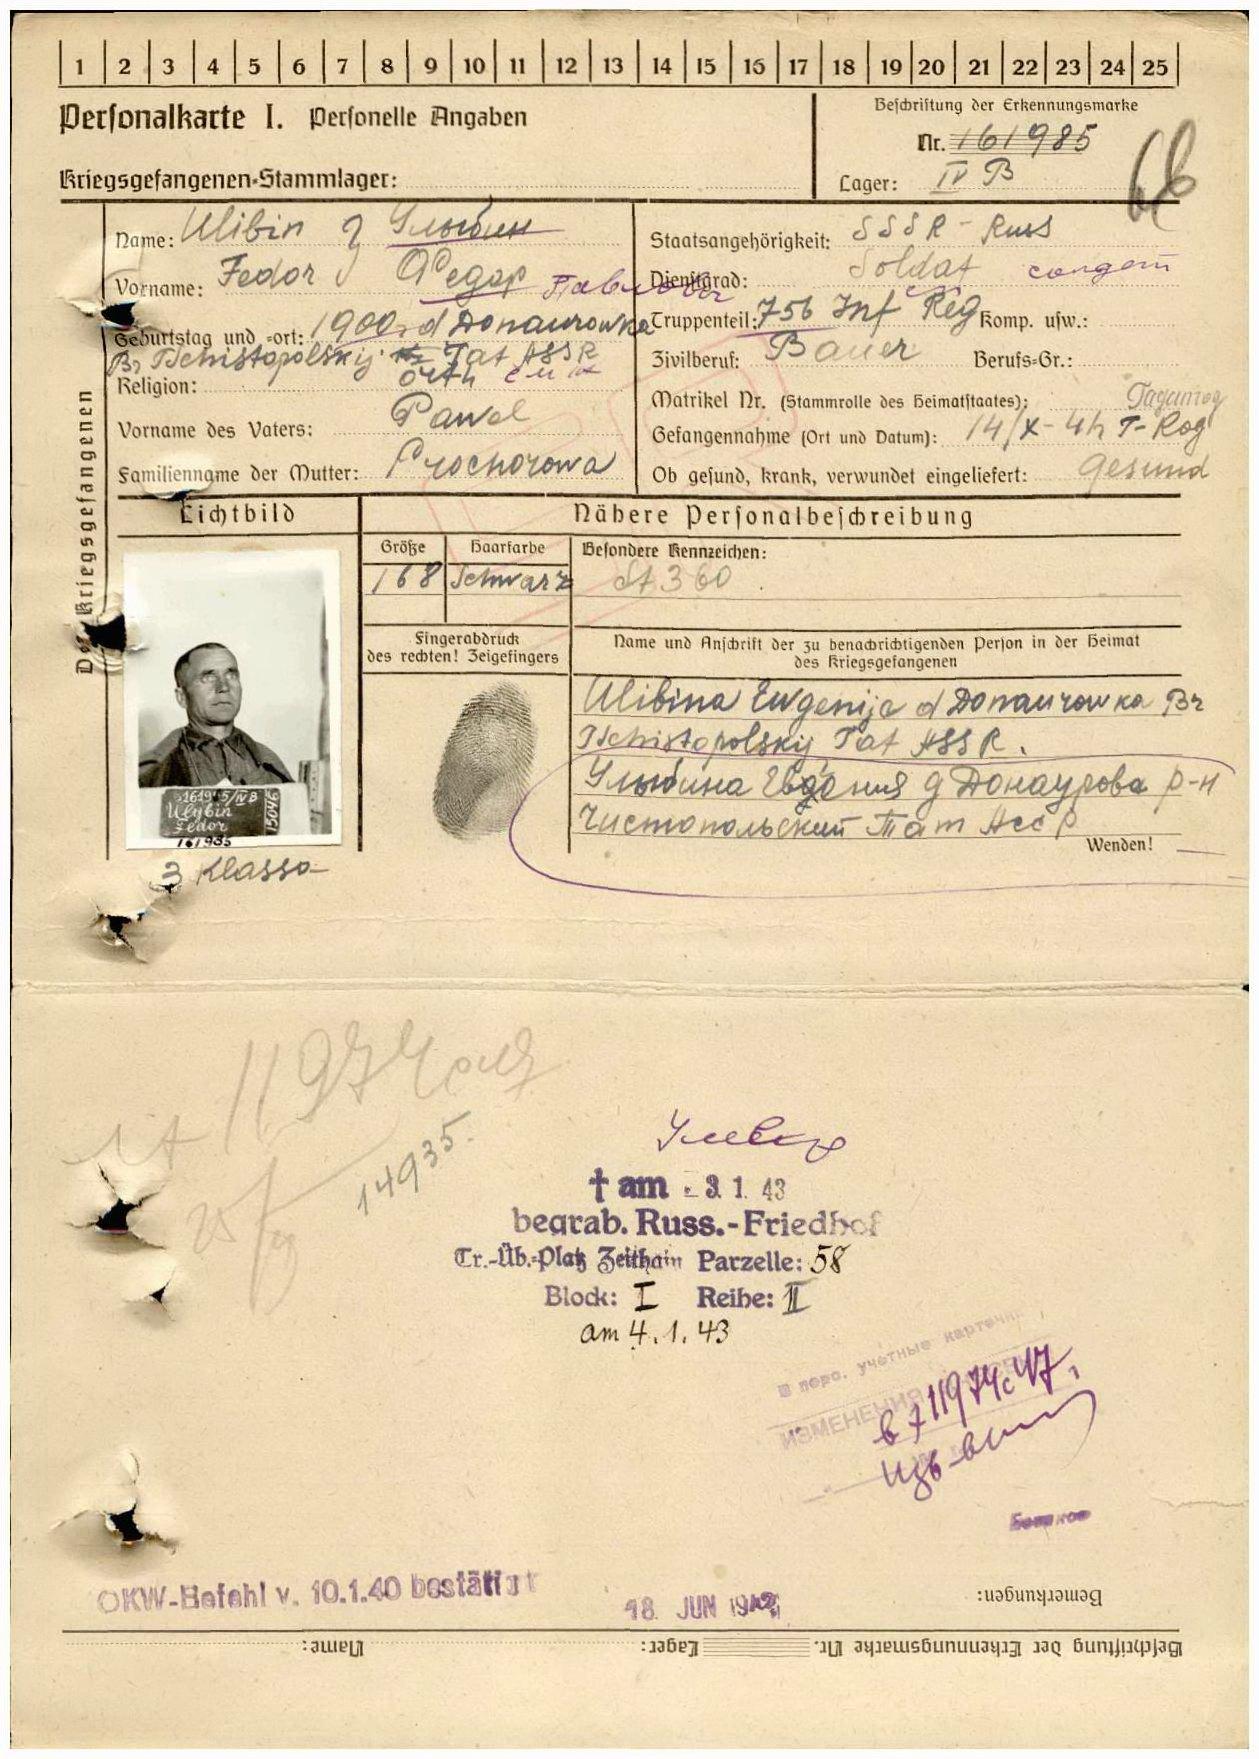 1 2 3 4 5 6 7 8 9 10 11 12 13 14 15 16 17 18 19 20 21 22 23 24 25
Personalkarte I. Personelle Angaben
Beschriftung der Erkennungsmarke
Nr. 161985
Kriegsgefangenen-Stammlager:
Lager: IV B
Des Kriegsgefangenen
Name: Ulibin Улыбин
Vorname: Fedor Федор Павлович
Geburtstag und -ort: 1900. d Donaurowka
Br Tschistopolskij Tat ASSR
Religion: orth
Vorname des Vaters: Pawel
Familienname der Mutter: Prochorowa
Staatsangehörigkeit: SSSR - Russ
Dienstgrad: Soldat солдат
Truppenteil: 756 Inf Reg Komp. usw.:
Zivilberuf: Bauer Berufs-Gr.:
Matrikel Nr. (Stammrolle des Heimatstaates):
Taganrog
Gefangennahme (Ort und Datum): 14/X - 41 T-Rog
Ob gesund, krank, verwundet eingeliefert: gesund
Lichtbild
Nähere Personalbeschreibung
Größe Haarfarbe Besondere Kennzeichen:
168 Schwarz St 360
Fingerabdruck
des rechten! Zeigefingers
Name und Anschrift der zu benachrichtigenden Person in der Heimat
des Kriegsgefangenen
Ulibina Ewgenija d Donaurowka Br
Tschistopolskij Tat ASSR.
Улыбина Евгения д Донаурова р-н
Чистопольский Тат Асср
Wenden!
Ulybin
Fedor
15046
161985
3 Klasso
11974
14935.
† am - 3. 1. 43
begrab. Russ.-Friedhof
Tr.-Üb.-Platz Zeithain Parzelle: 58
Block: I Reihe: II
am 4. 1. 43
В перс. учетные карточки
ИЗМЕНЕНИЯ
в 7 11974с 47.
OKW-Befehl v. 10.1.40 bestätigt
18. JUN 1942
Bemerkungen:
Beschriftung der Erkennungsmarke Nr. Lager: Name: